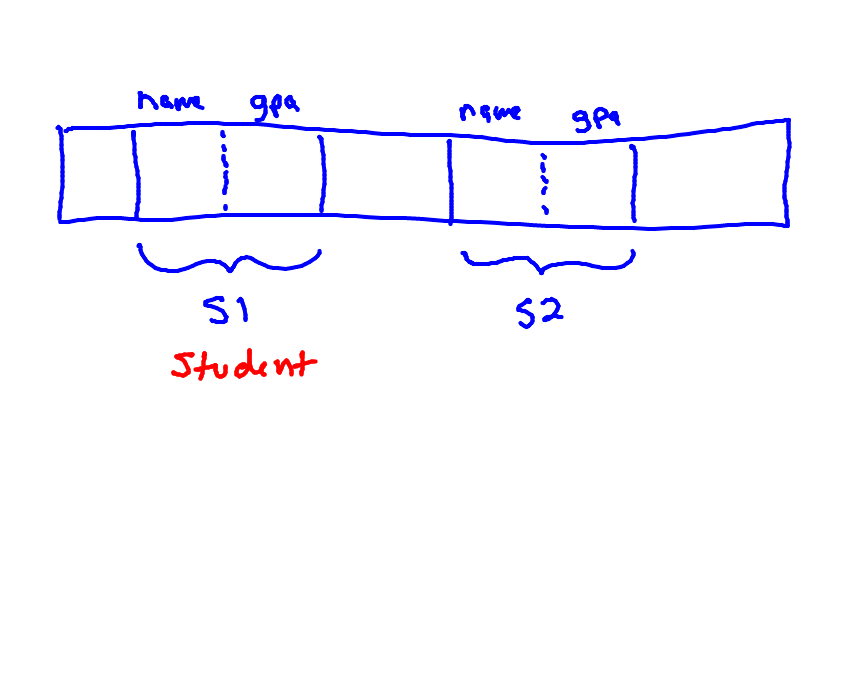 name gpa name gpa
S1 S2
Student